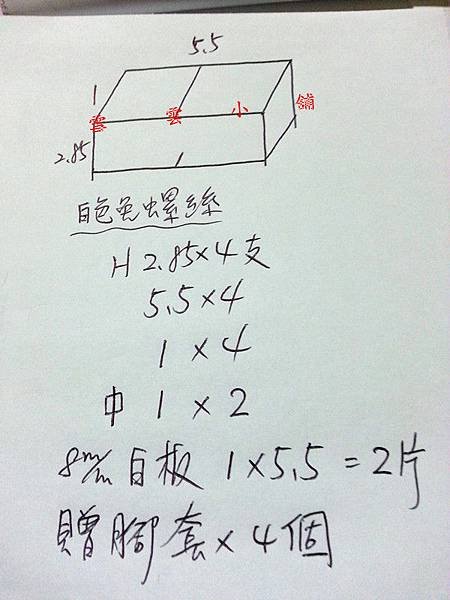 5.5
1
雲雲小舖
2.85
1
白色免螺絲
H 2.85×4支
5.5×4
1×4
中 1×2
8m/m 白板 1×5.5=2片
贈腳套×4個